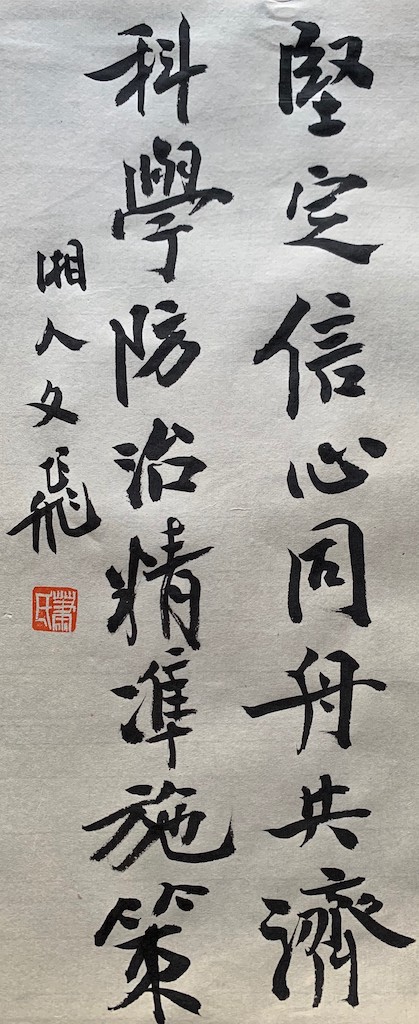 堅定信心同舟共濟
科學防治精準施策
湘人文飛
蕭氏